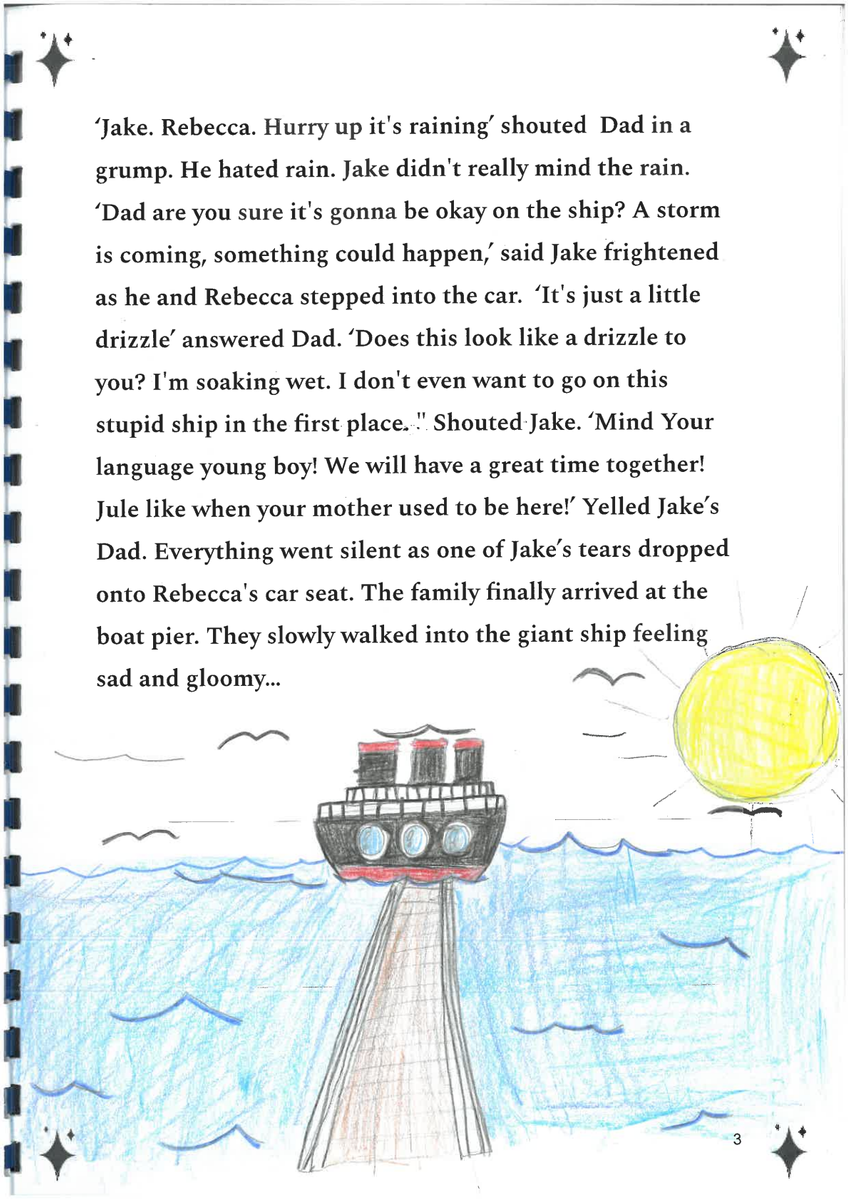 ‘Jake. Rebecca. Hurry up it's raining’ shouted  Dad in a
grump. He hated rain. Jake didn't really mind the rain.
‘Dad are you sure it's gonna be okay on the ship? A storm
is coming, something could happen,’ said Jake frightened
as he and Rebecca stepped into the car.  ‘It's just a little
drizzle’ answered Dad. ‘Does this look like a drizzle to
you? I'm soaking wet. I don't even want to go on this
stupid ship in the first place. " Shouted Jake. ‘Mind Your
language young boy! We will have a great time together!
Jule like when your mother used to be here!’ Yelled Jake’s
Dad. Everything went silent as one of Jake’s tears dropped
onto Rebecca's car seat. The family finally arrived at the
boat pier. They slowly walked into the giant ship feeling
sad and gloomy...
3